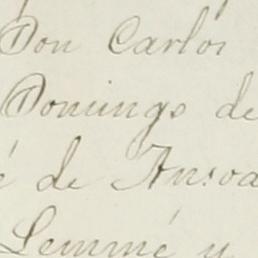 Don Carlos
Domingo de
é de Ansoa
Lemmé y